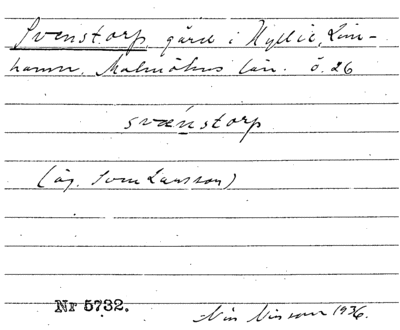 Svenstorp, gård i Hyllie, Lim-
hamn. Malmöhus län. ö. 26
svǽnstorp
(äg. Sven Larsson)
Nr 5732.
Nils Nilsson 1936.